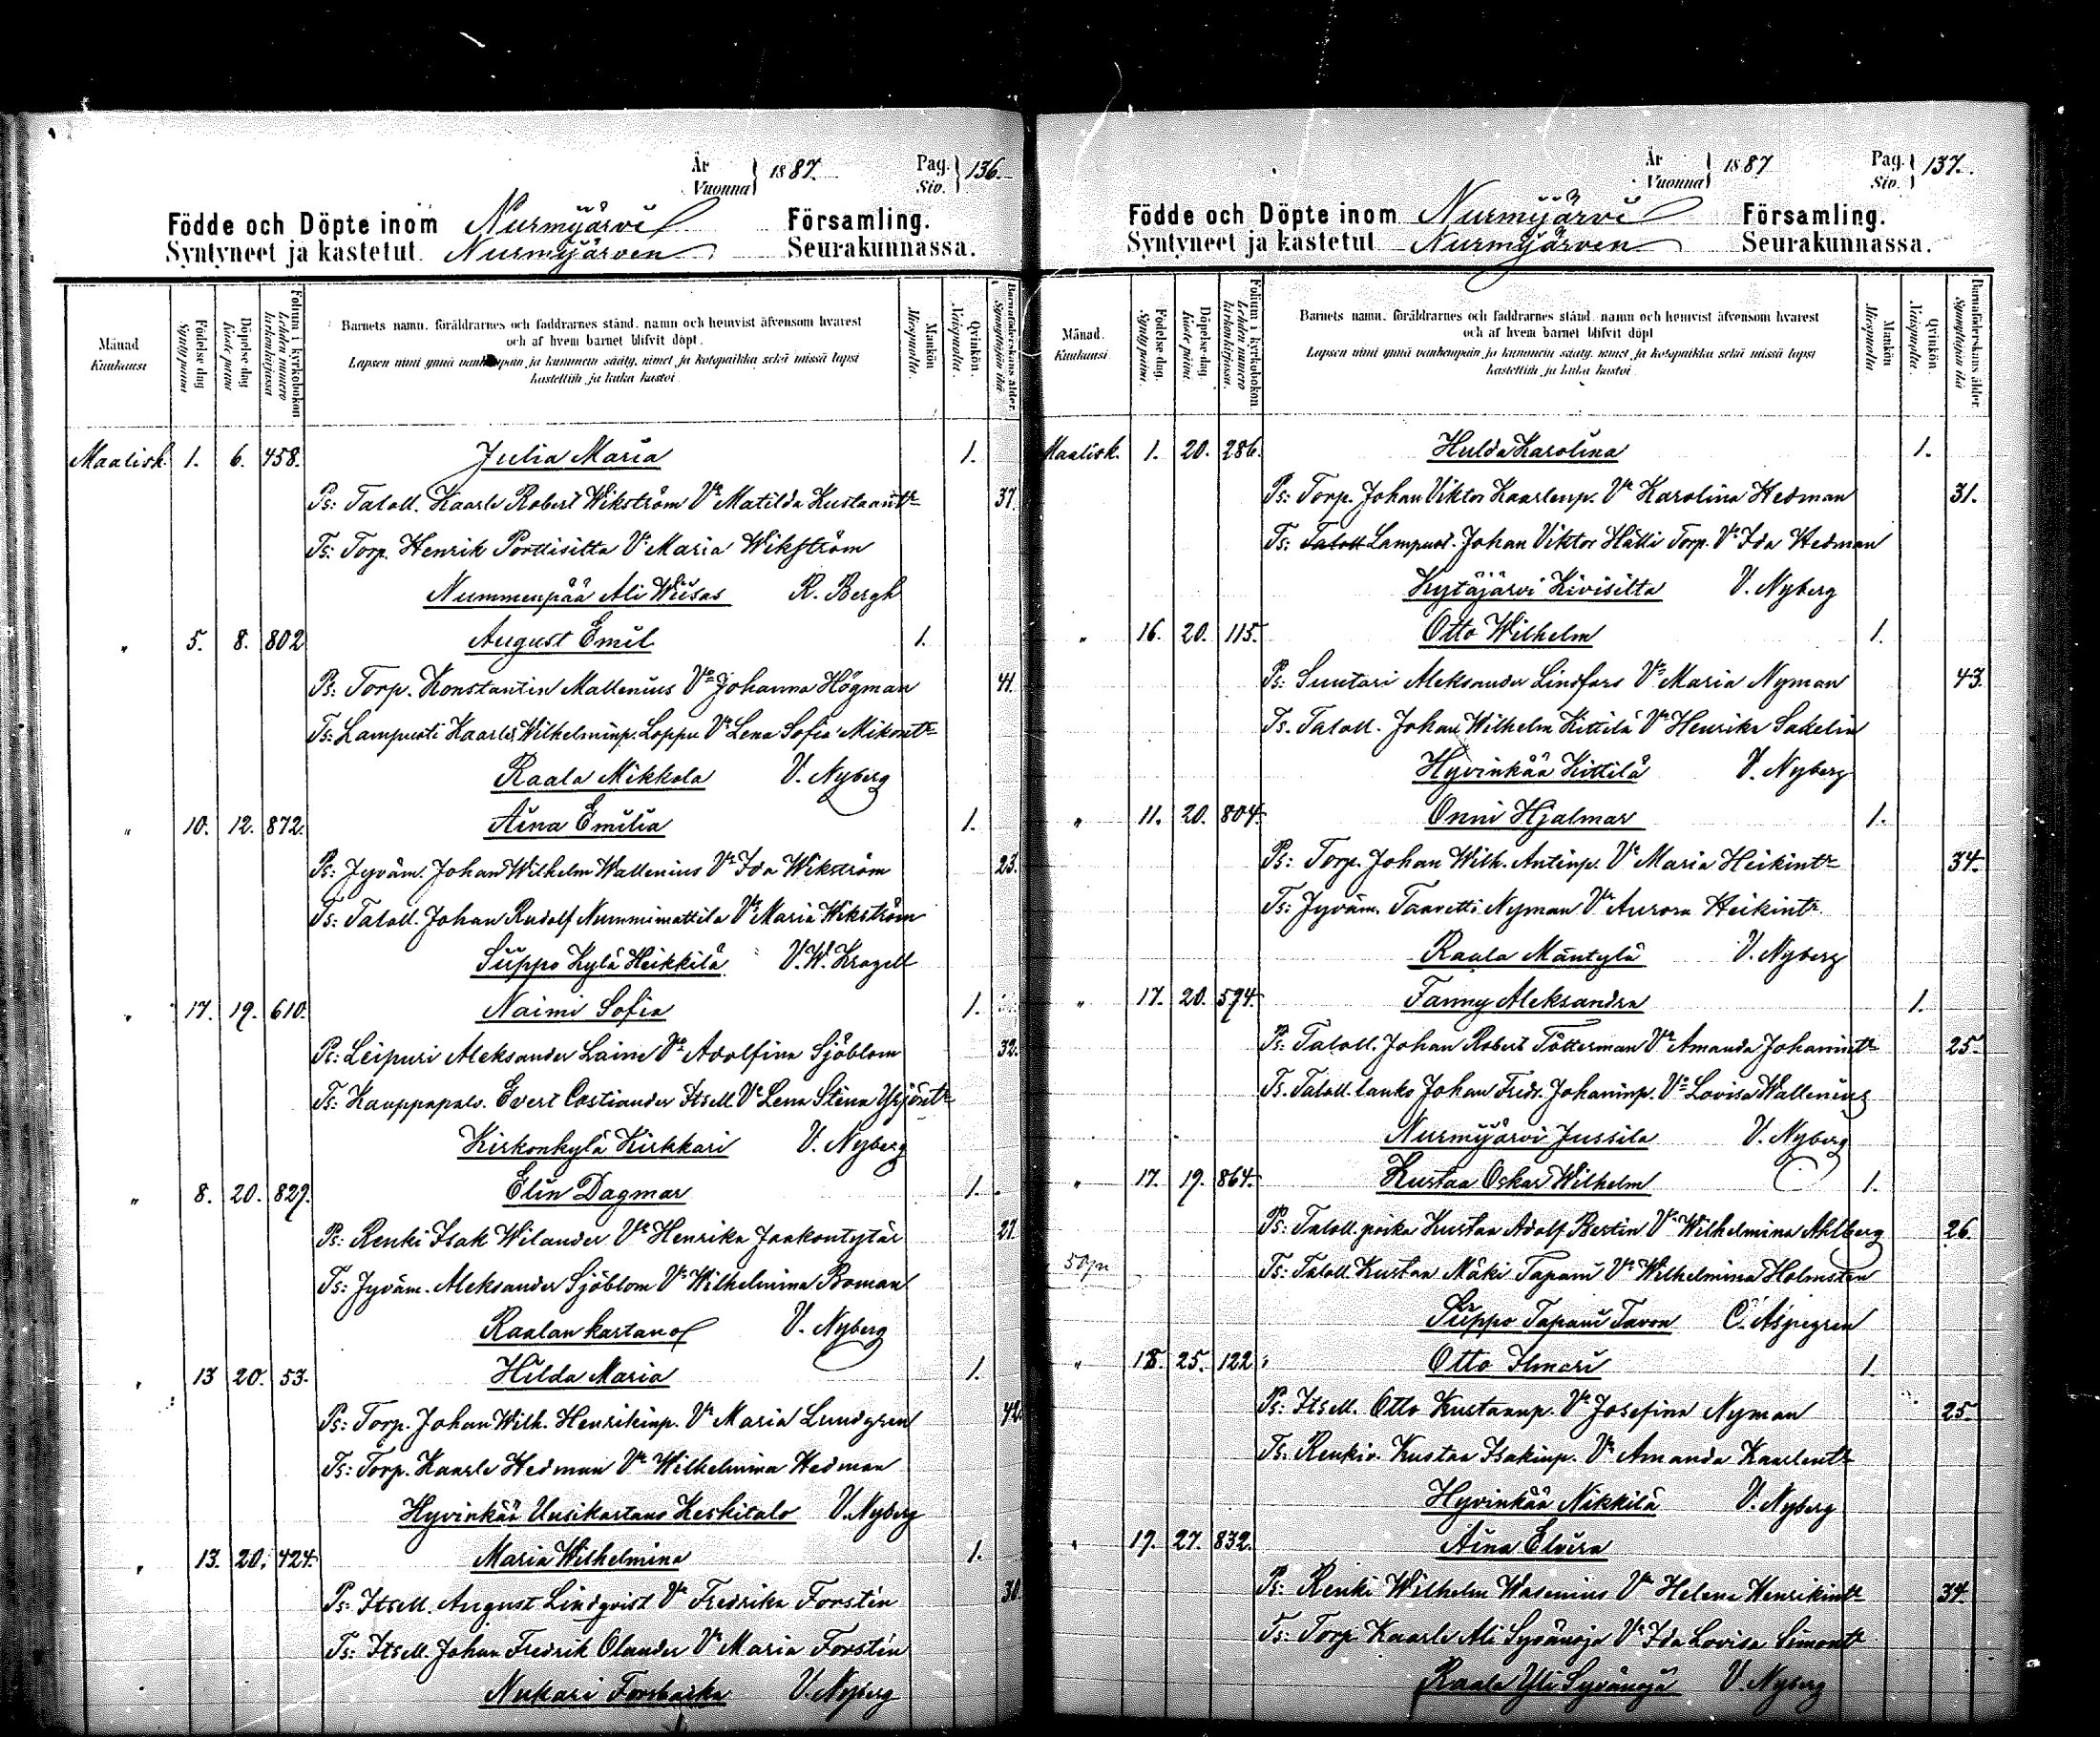 År Vuonna } 1887. Pag. Siv. } 136.
Födde och Döpte inom Nurmijärvi Församling.
Syntyneet ja kastetut Nurmijärven Seurakunnassa.
Månad Kuukausi
Födelse-dag Syntypäivä
Döpelse-dag Kastepäivä
Folium i kyrkoboken Lehden numero kirkonkirjassa
Barnets namn, föräldrarnes och faddrarnes stånd, namn och hemvist äfvensom hvarest
och af hvem barnet blifvit döpt.
Lapsen nimi ynnä vanhempain ja kummein sääty, nimet ja kotopaikka sekä missä lapsi
kastettiin ja kuka kastoi.
Mankön Miespuolta.
Qvinkön. Naispuolta.
Barnaföderskans ålder. Synnyttäjän ikä
Maalisk. 1. 6. 458. Julia Maria 1.
Ps: Taloll. Kaarle Robert Wikström Vo Matilda Kustaantr 37
Ts: Torp. Henrik Porttisilta Vo Maria Wikström
Nummenpää Ali Wiisas R. Bergh
" 5. 8. 802 August Emil 1.
Ps: Torp. Konstantin Mallenius Vo Johanna Högman 41.
Ts: Lampuoti Kaarle Wilhelminp. Loppu Vo Lena Sofia Mikontr
Raala Mikkola V. Nyberg
" 10. 12. 872. Aina Emilia 1.
Ps: Jyväm. Johan Wilhelm Wallenius Vo Ida Wikström 23.
Ts: Taloll. Johan Rudolf Nummimattila Vo Maria Wikström
Siippo Kylä Heikkilä V. W. Kragell
" 17. 19. 610. Naimi Sofia 1.
Ps: Leipuri Aleksander Laine Vo Adolfina Sjöblom 32.
Ts: Kauppapalv. Evert Castiander Itsell. Vo Lena Stina Yrjöntr
Kirkonkylä Kirkkari V. Nyberg
" 8. 20. 829. Elin Dagmar 1.
Ps: Renki Isak Wilander Vo Henrika Jaakontytär 27.
Ts: Jyväm. Aleksander Sjöblom Vo Wilhelmina Boman
Raalan kartano V. Nyberg
" 13 20. 53. Hilda Maria 1.
Ps: Torp. Johan Wilh. Henrikinp. Vo Maria Lundgren 42.
Ts: Torp. Kaarle Hedman Vo Wilhelmina Hedman
Hyvinkää Uusikartano Keskitalo V. Nyberg
" 13. 20. 424. Maria Wilhelmina 1.
Ps: Itsell. August Lindqvist Vo Fredrika Forstén 30
Ts: Itsell. Johan Fredrik Olander Vo Maria Forstén
Nukari Forsbacka V. Nyberg
År Vuonna } 1887 Pag. Siv. } 137.
Födde och Döpte inom Nurmijärvi Församling.
Syntyneet ja kastetut Nurmijärven Seurakunnassa.
Månad. Kuukausi
Födelse-dag. Syntypäivä.
Döpelse-dag. Kastepäivä.
Folium i kyrkoboken Lehden numero kirkonkirjassa.
Barnets namn, föräldrarnes och faddrarnes stånd, namn och hemvist äfvensom hvarest
och af hvem barnet blifvit döpt
Lapsen nimi ynnä vanhempain ja kummein sääty, nimet ja kotopaikka sekä missä lapsi
kastettiin ja kuka kastoi.
Mankön Miespuolta
Qvinkön. Naispuolta.
Barnaföderskans ålder. Synnyttäjän ikä
Maalisk. 1. 20. 286. Hulda Karolina 1.
Ps: Torp. Johan Viktor Kaarlenp. Vo Karolina Hedman 31.
Ts: Taloll Lampuod. Johan Viktor Hätti Torp. Vo Ida Hedman
Kytäjärvi Kivisilta V. Nyberg
" 16. 20. 115. Otto Wilhelm 1.
Ps: Suutari Aleksander Lindfors Vo Maria Nyman 43.
Ts. Taloll. Johan Wilhelm Kittilä Vo Henrika Sadelin
Hyvinkää Kittilä V. Nyberg
" 11. 20. 804. Onni Hjalmar 1.
Ps: Torp. Johan Wilh. Antinp. Vo Maria Heikintr 34.
Ts: Jyväm. Taavetti Nyman Vo Aurora Heikintr.
Raala Mäntylä V. Nyberg
" 17. 20. 594. Fanny Aleksandra 1.
Ps: Taloll. Johan Robert Tötterman Vo Amanda Johanintr 25.
Ts. Taloll. lanko Johan Fredr. Johaninp. Vo Lovisa Wallenius
Nurmijärvi Jussila V. Nyberg
" 17. 19. 864. Kustaa Oskar Wilhelm 1.
Ps: Taloll. poika Kustaa Adolf Bertin Vo Wilhelmina Ahlberg 26
Ts: Taloll. Kustaa Mäki Tapani Vo Wilhelmina Holmsten
Siippo Tapani Tavon C. Aspegren
" 18. 25. 122. Otto Ilmari 1.
Ps: Itsell. Otto Kustaanp. Vo Josefina Nyman 25
Ts: Renkiv. Kustaa Isakinp. Vo Amanda Kaarlentr
Hyvinkää Nikkilä V. Nyberg
" 19. 27. 832. Aina Elvira
Ps: Renki Wilhelm Wasenius Vo Helena Henrikintr 34.
Ts: Torp. Kaarle Ali Syvänoja Vo Ida Lovisa Simontr
Raala Yli Syvänoja V. Nyberg